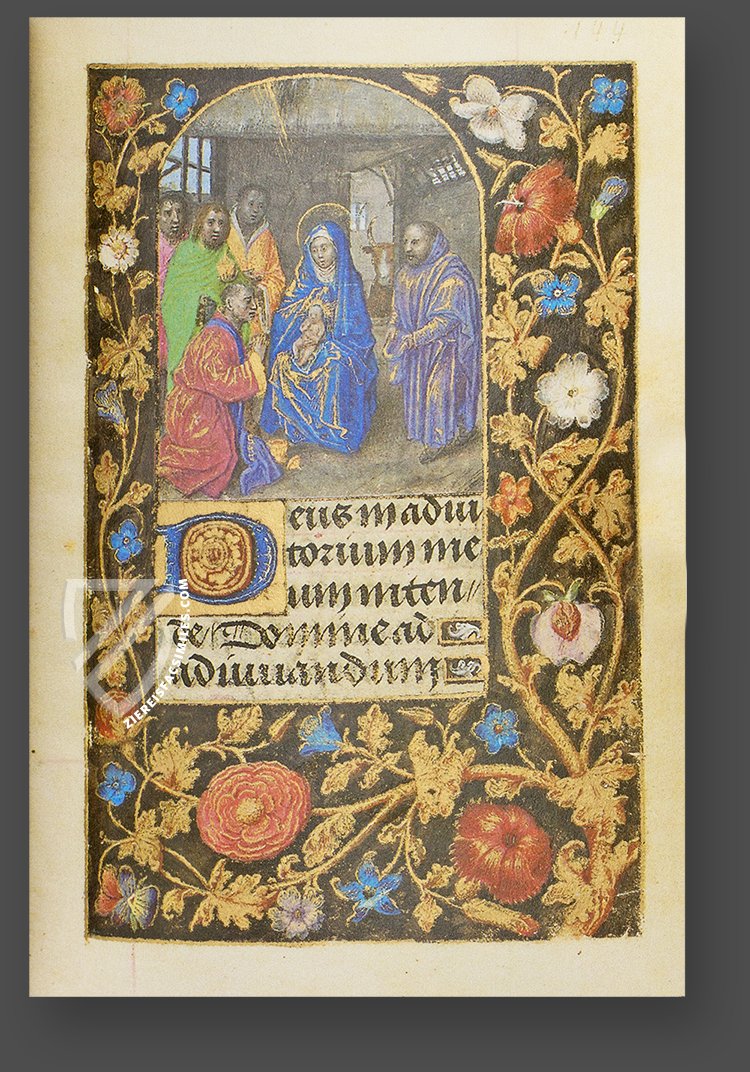 144
Deus in adiu
torium me
um inten//
de Domine ad
adiuuandum
ZIEREISFACSIMILES.COM